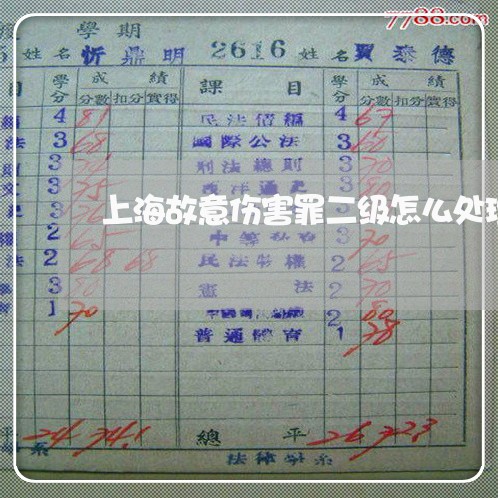 7788.com
學期
姓名 忻鼎明 2616 姓名 賈泰德
目 學分 成績 課目 學分 成績
分數 扣分 實得 分數 扣分 實得
4 81 民法債編 4 67
法 3 68 國際公法 3 60
3 刑法總則 3 70
3 75 西洋通史 3 80
上海故意伤害罪二级怎么处理
2 65 3 70
法 2 68 68 民法物權 2 65
3 80 憲法 2 70
1 70 2 80
普通體育 1 78
平 24 74.1 總平 26 72.3
系 法律學系